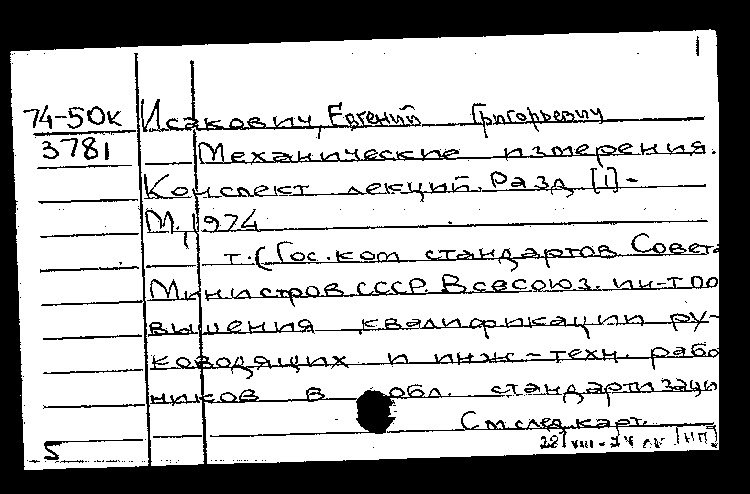 74-50к Исакович, Евгений Григорьевич
3781 Механические измерения.
Конспект лекций. Разд [1] -
М., 1974
т. (Гос. ком стандартов Совета
Министров СССР. Всесоюз. ин-т по
вышения квалификации ру-
ководящих и инж-техн. рабо
тников в обл. стандартизаци
См след. карт.
5